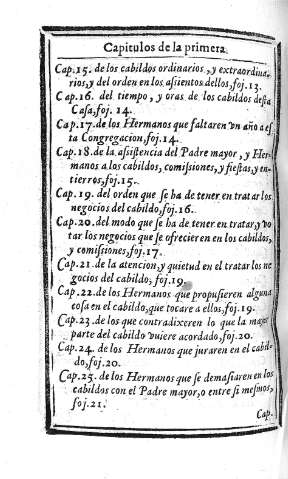 Capitulos de la primera
Cap.15. de los cabildos ordinarios, y extraordina-
rios, y del orden en los aſsientos dellos, foj.13.
Cap.16. del tiempo, y oras de los cabildos deſta
Caſa, foj. 14.
Cap.17. de los Hermanos que faltaren vn año a eſ
ta Congregacion, foj.14.
Cap.18. de la aſsiſtencia del Padre mayor, y Her-
manos a los cabildos, comiſsiones, y fieſtas, y en-
tierros, foj.15.
Cap.19. del orden que ſe ha de tener en tratar los
negocios del cabildo, foj.16.
Cap.20. del modo que ſe ha de tener en tratar, y vo
tar los negocios que ſe ofrecieren en los cabildos,
y comiſsiones, foj.17.
Cap.21. de la atencion, y quietud en el tratar los ne
gocios del cabildo, foj.19.
Cap.22. de los Hermanos que propuſieren alguna
coſa en el cabildo, que tocare a ellos, foj.19.
Cap.23. de los que contradixeren lo que la mayor
parte del cabildo vuiere acordado, foj.20.
Cap.24. de los Hermanos que juraren en el cabil-
do, foj.20.
Cap.25. de los Hermanos que ſe demaſiaren en los
cabildos con el Padre mayor, o entre ſi meſmos,
foj.21.
Cap.